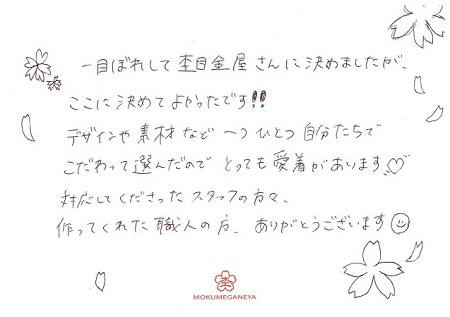 一目ぼれして杢目金屋さんに決めましたが、
ここに決めてよかったです!!
デザインや素材など一つひとつ自分たちで
こだわって選んだので とっても愛着があります♡
対応してくださったスタッフの方々、
作ってくれた職人の方、ありがとうございます☺
杢
MOKUMEGANEYA